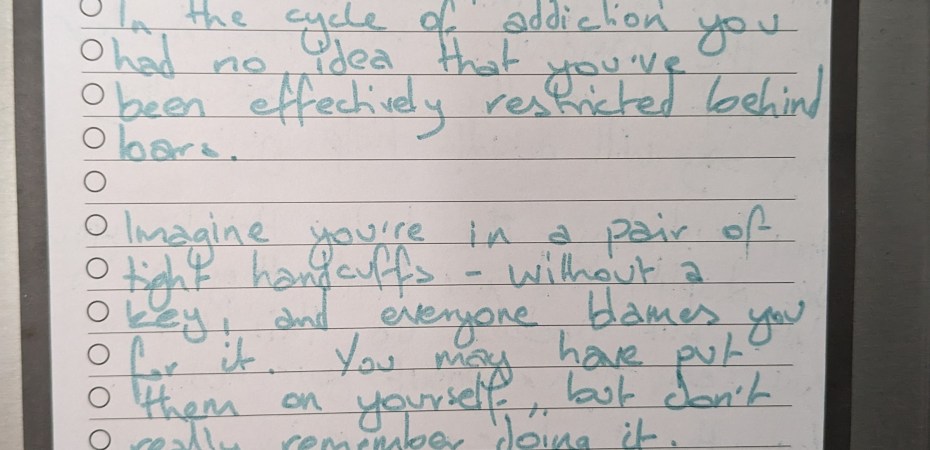 In the cycle of addiction you
had no idea that you've
been effectively restricted behind
bars.
Imagine you're in a pair of
tight handcuffs - without a
key, and everyone blames you
for it. You may have put
them on yourself,, but don't
really remember doing it.